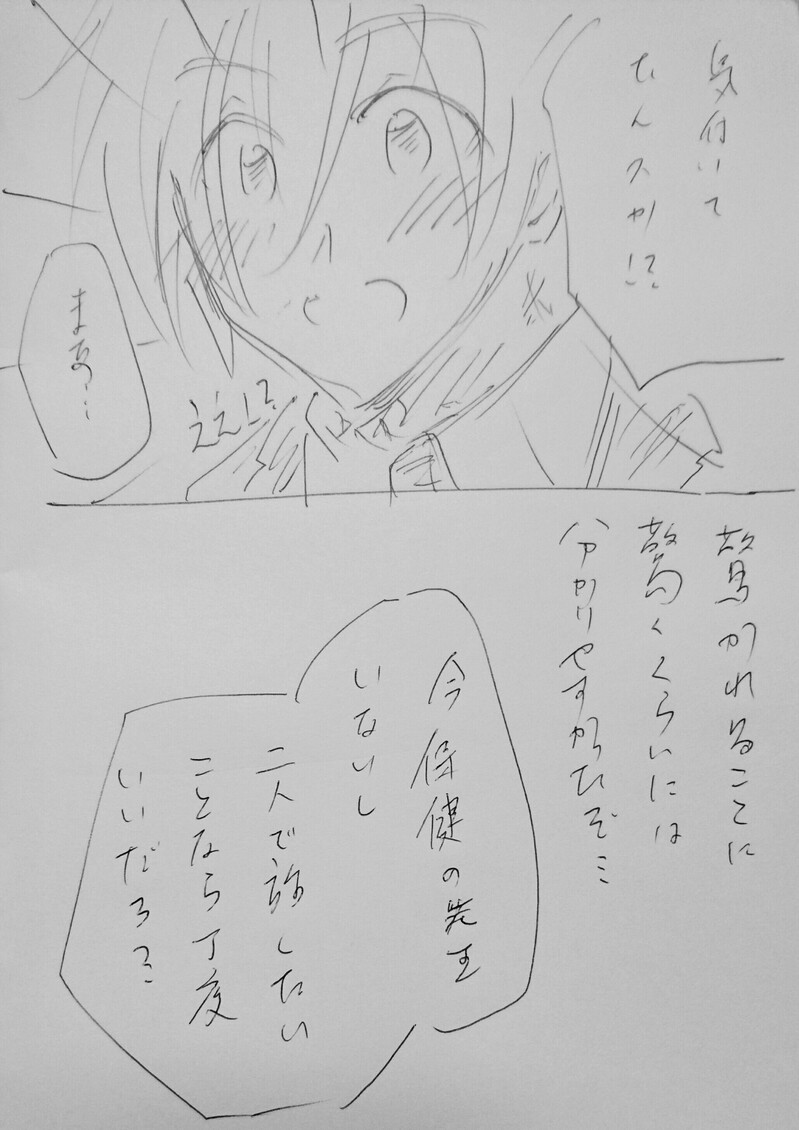 気付いて
たんスか!?
まあ…
ええ!?
驚かれることに
驚くくらいには
分かりやすかったぞ…
今保健の先生
いないし
二人で話したい
ことなら丁度
いいだろ…